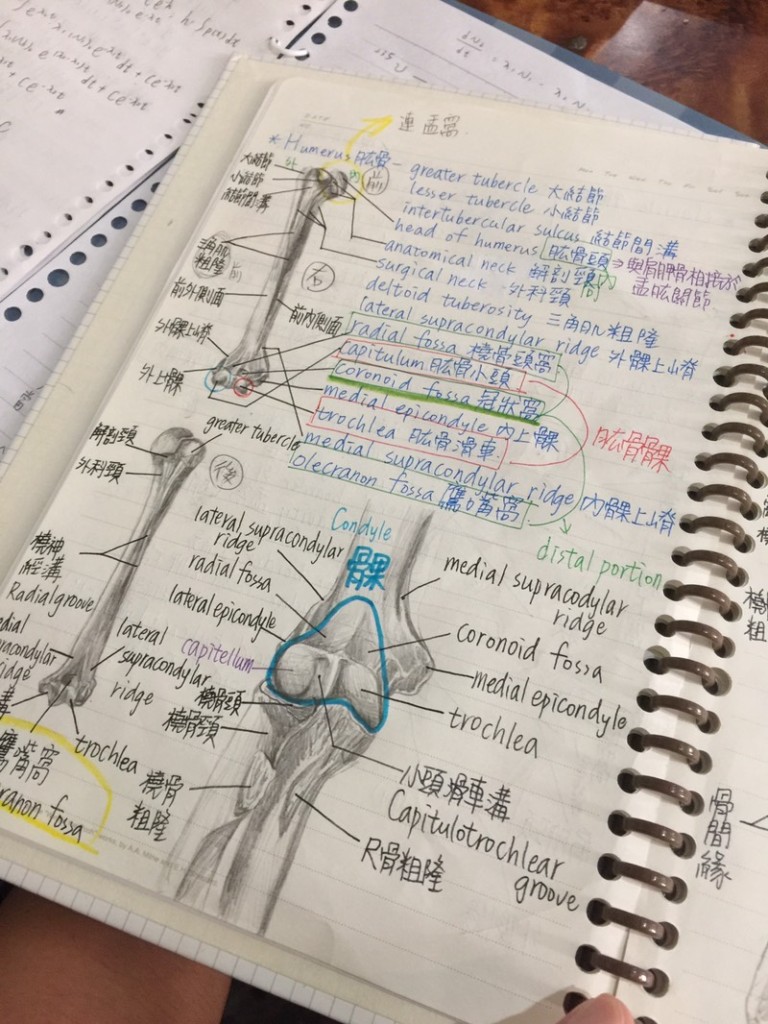 連盂窩
* Humerus 肱骨
greater tubercle 大結節
lesser tubercle 小結節
intertubercular sulcus 結節間溝
head of humerus 肱骨頭 ⇒ 與肩胛骨相接於
盂肱關節
anatomical neck 解剖頸
surgical neck 外科頸
deltoid tuberosity 三角肌粗隆
lateral supracondylar ridge 外髁上脊
radial fossa 橈骨頭窩
capitulum 肱骨小頭
coronoid fossa 冠狀窩
medial epicondyle 內上髁
trochlea 肱骨滑車
medial supracondylar ridge 內髁上脊
olecranon fossa 鷹嘴窩
肱骨髁
distal portion
外
內
前
大結節
小結節
結節間溝
三角肌
粗隆
前
右
前外側面
前內側面
外髁上脊
外上髁
解剖頸
greater tubercle
外科頸
後
橈神
經溝
Radial groove
lateral
supracondylar
ridge
trochlea
鷹嘴窩
cranon fossa
Condyle
髁
lateral supracondylar
ridge
radial fossa
lateral epicondyle
capitellum
橈骨頭
橈骨頸
橈骨
粗隆
medial supracodylar
ridge
coronoid fossa
medial epicondyle
trochlea
小頭滑車溝
Capitulotrochlear
groove
尺骨粗隆
骨
間
緣